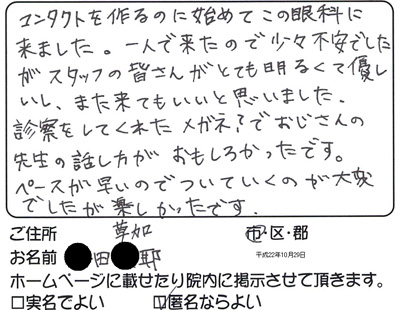 コンタクトを作るのに始めてこの眼科に
来ました。一人で来たので少々不安でした
がスタッフの皆さんがとても明るくて優し
いし、また来てもいいと思いました。
診察をしてくれたメガネ?でおじさんの
先生の話し方がおもしろかったです。
ペースが早いのでついていくのが大変
でしたが楽しかったです。
ご住所 草加 市区・郡
お名前 田 耶 平成22年10月29日
ホームページに載せたり院内に掲示させて頂きます。
□実名でよい ☑匿名ならよい